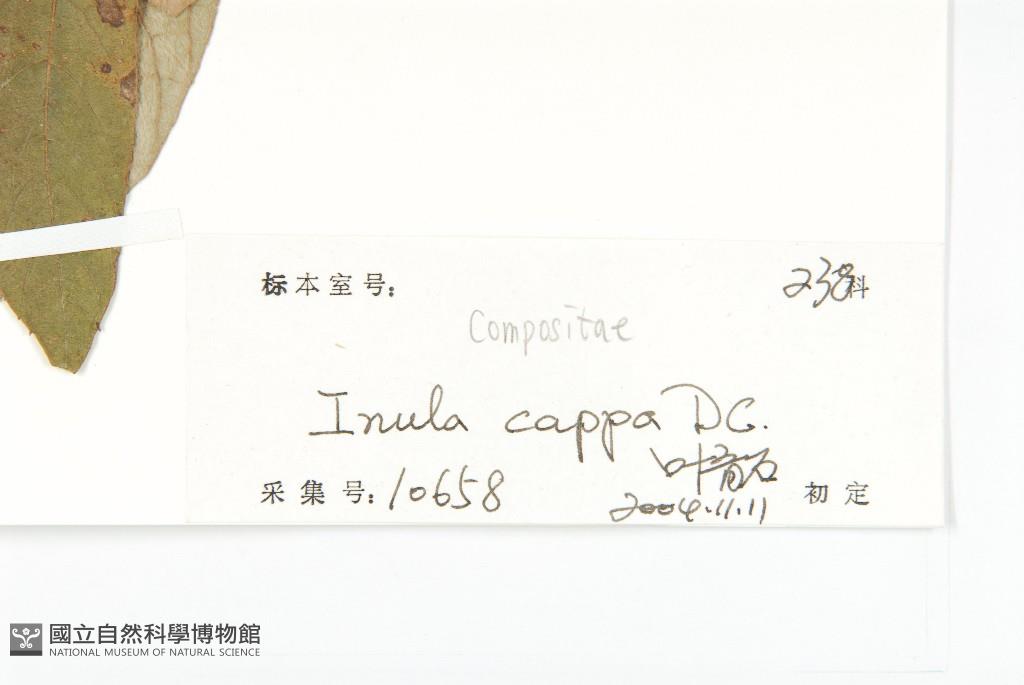 标本室号: 238科
Compositae
Inula cappa DC.
采集号: 10658
2004.11.11 初定
國立自然科學博物館
NATIONAL MUSEUM OF NATURAL SCIENCE